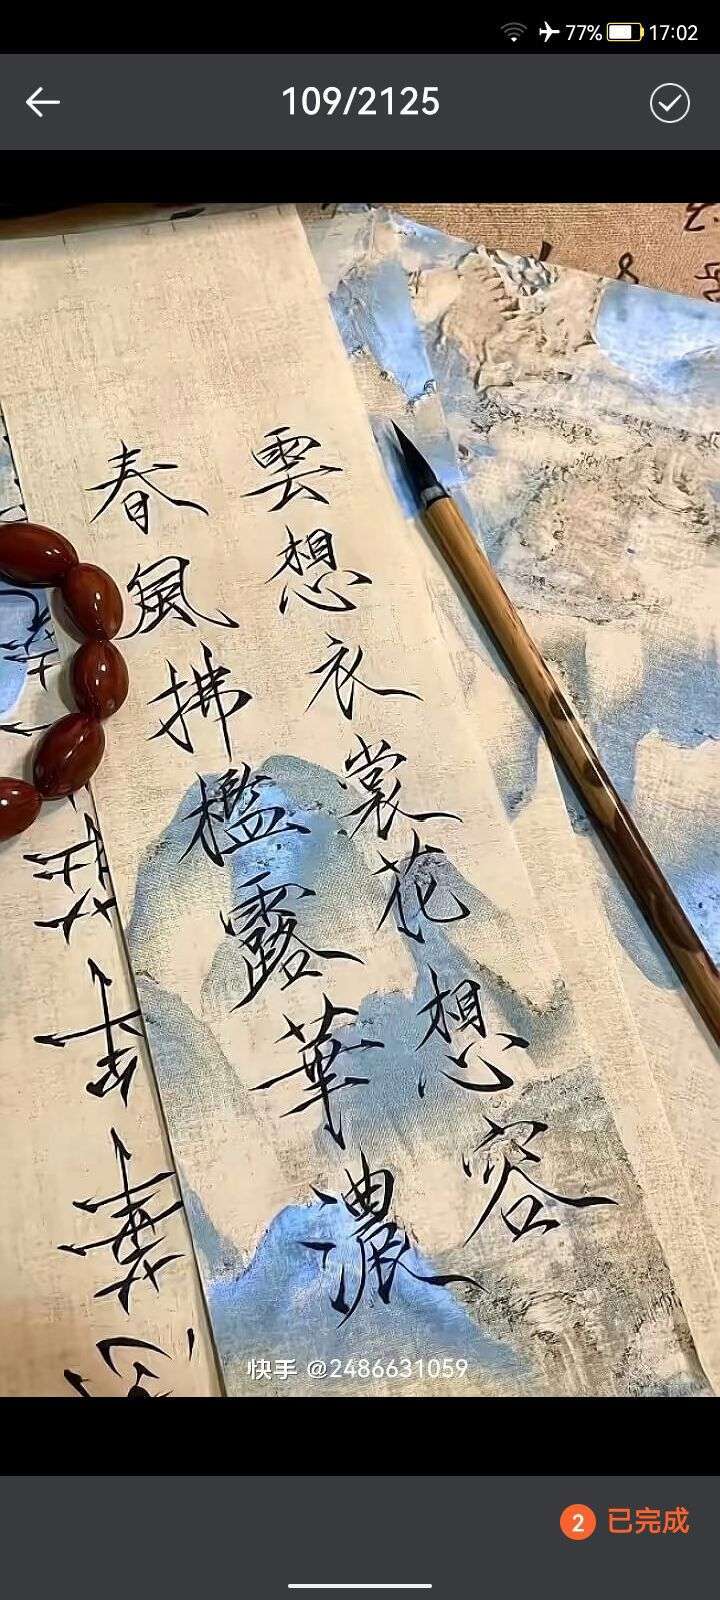 77% 17:02
109/2125
雲想衣裳花想容
春風拂檻露華濃
快手 @2486631059
2 已完成